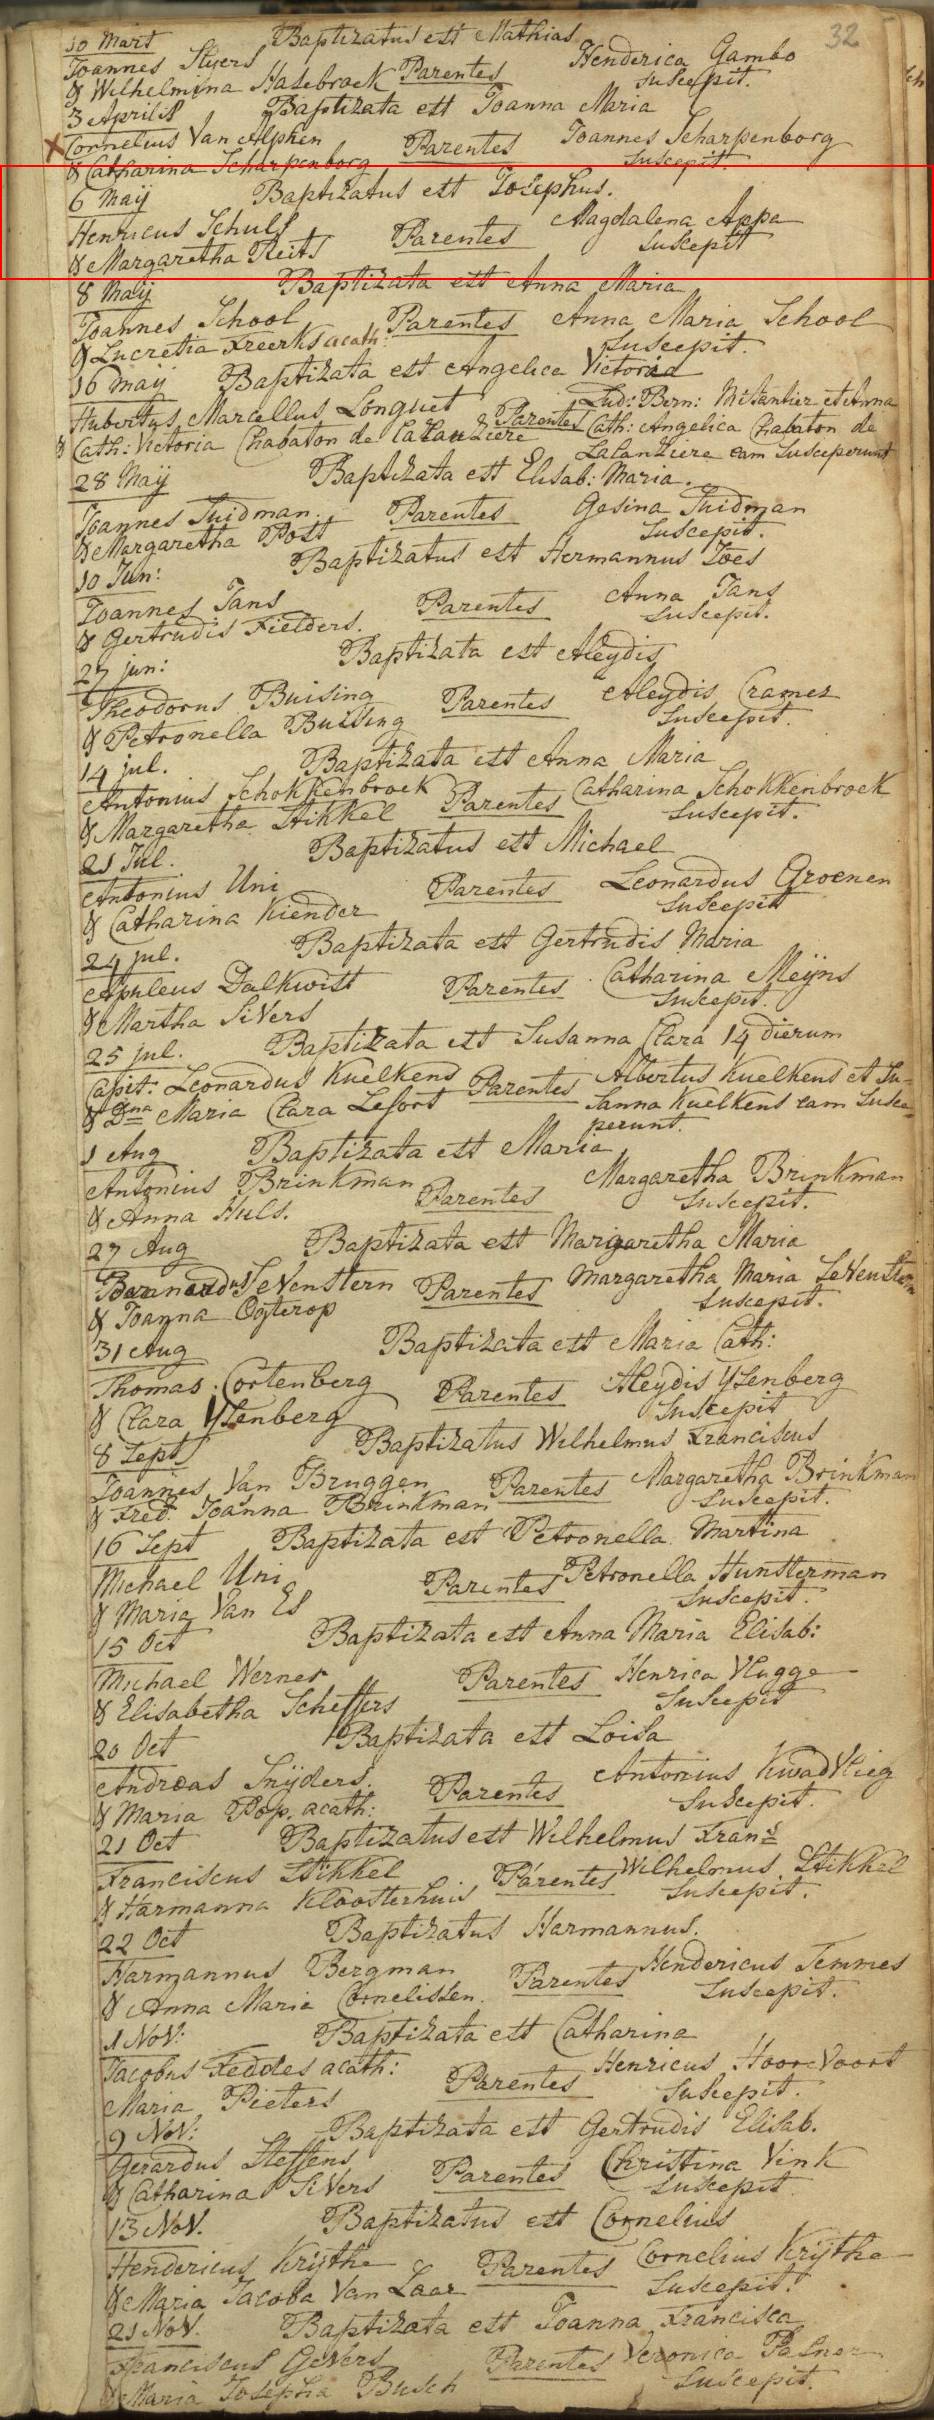 32
10 Mart Baptizatus est Mathias
Joannes Stijers Hendrica Gambo
& Wilhelmina Hasebroek Parentes suscepit.
3 Aprilis Baptizata est Joanna Maria
Cornelius Van Alphen Parentes Joannes Scharpenborg
& Catharina Scharpenborg suscepit.
6 Maij Baptizatus est Josephus.
Henricus Schuls Parentes Magdalena Appa
& Margaretha Reits suscepit
8 Maij Baptizata est Anna Maria
Joannes School Parentes Anna Maria School
& Lucretia Freerks acath: suscepit.
16 maij Baptizata est Angelica Victoria
Hubertus Marcellus Longuet Parentes Lud: Bern: Mitantier et Anna
& Cath: Victoria Chabaton de Lalanziere Cath: Angelica Chabaton de
Lalanziere eam susceperunt
28 Maij Baptizata est Elisab: Maria.
Joannes Tuidman Parentes Gesina Tuidman
& Margaretha Post suscepit.
10 Jun: Baptizatus est Hermannus Joes
Joannes Jans Parentes Anna Jans
& Gertrudis Fielders. suscepit.
27 jun: Baptizata est Aleydis
Theodorus Buising Parentes Aleydis Cramer
& Petronella Buising suscepit.
14 jul. Baptizata est Anna Maria
Antonius Schokkenbroek Parentes Catharina Schokkenbroek
& Margaretha Stikkel suscepit.
21 Jul. Baptizatus est Michael
Antonius Uni Parentes Leonardus Groenen
& Catharina Kiender suscepit
24 jul. Baptizata est Gertrudis Maria
Apuleus Dalkwist Parentes Catharina Meijns
& Martha Sivers suscepit.
25 jul. Baptizata est Susanna Clara 14 dierum
Capit: Leonardus Kuelkens Parentes Albertus Kuelkens et Su-
& Dna Maria Clara Lefort sanna Kuelkens eam susce=
perunt.
1 Aug Baptizata est Maria
Antonius Brinkman Parentes Margaretha Brinkman
& Anna Huls. suscepit.
27 Aug Baptizata est Margaretha Maria
Bernardus Sevenstern Parentes Margaretha Maria Sevenstern
& Joanna Oosterop suscepit.
31 Aug Baptizata est Maria Cath:
Thomas Cortenberg Parentes Aleydis Ysenberg
& Clara Ysenberg suscepit
8 Sept Baptizatus Wilhelmus Franciscus
Joannes Van Bruggen Parentes Margaretha Brinkman
& Fred: Joanna Brinkman suscepit.
16 Sept Baptizata est Petronella Martina
Michael Uni Parentes Petronella Hunsterman
& Maria Van Es suscepit.
15 Oct Baptizata est Anna Maria Elisab:
Michael Werner Parentes Henrica Vlugge
& Elisabetha Scheffers suscepit
20 Oct Baptizata est Loisa
Andreas Snijders. Parentes Antonius Kwadvlieg
& Maria Pop. acath: suscepit.
21 Oct Baptizatus est Wilhelmus Frans
Franciscus Stikkel Parentes Wilhelmus Stikkel
& Harmanna Kloosterhuis suscepit.
22 Oct Baptizatus Harmannus.
Harmannus Bergman Parentes Hendericus Temmes
& Anna Maria Cornelissen. suscepit.
1 Nov: Baptizata est Catharina
Jacobus Feddes acath: Parentes Henricus Hoorevoort
Maria Pieters suscepit.
9 Nov: Baptizata est Gertrudis Elisab.
Gerardus Steffens Parentes Christina Vink
& Catharina Sivers suscepit.
13 Nov. Baptizatus est Cornelius
Hendericus Krijthe Parentes Cornelius Krijthe
& Maria Jacoba Van Laar suscepit.
21 Nov. Baptizata est Joanna Francisca
Franciscus Gevers Parentes Veronica Pasner
& Maria Josepha Busch suscepit.